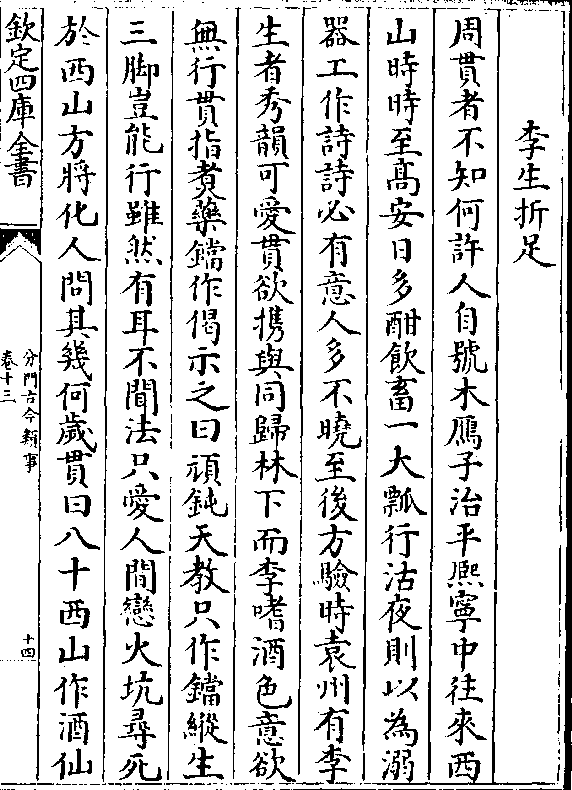 李生折足
周貫者不知何許人自號木鴈子治平熈寧中往來西
山時時至髙安日多酣飲畜一大瓢行沽夜則以為溺
器工作詩詩必有意人多不曉至後方驗時袁州有李
生者秀韻可愛貫欲携與同歸林下而李嗜酒色意欲
無行貫指煑藥鐺作偈示之曰頑鈍天教只作鐺縱生
三脚豈能行雖然有耳不聞法只愛人間戀火坑尋死
於西山方將化人問其幾何歲貫曰八十西山作酒仙
欽定四庫全書
分門古今類事
卷十三
十四